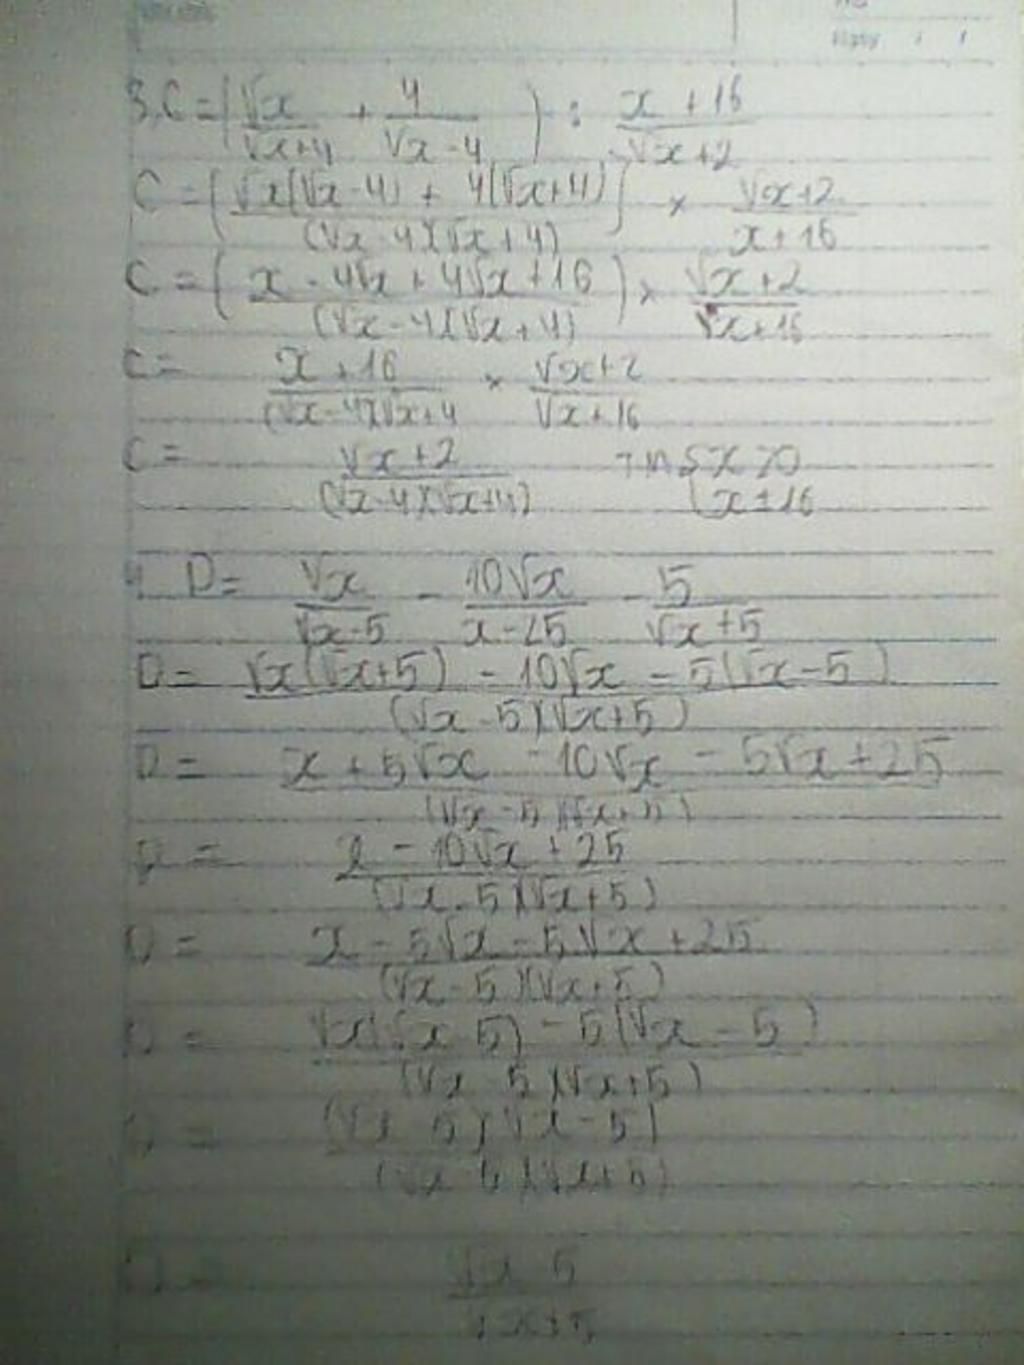 Ngày / /
3. C = (√x/(√x+4) + 4/(√x-4)) : (x+16)/(√x+2)
C = (√x(√x-4) + 4(√x+4))/((√x-4)(√x+4)) × (√x+2)/(x+16)
C = (x-4√x+4√x+16)/((√x-4)(√x+4)) × (√x+2)/(√x+16)
C = (x+16)/((√x-4)(√x+4) × (√x+2)/(√x+16)
C = (√x+2)/((√x-4)(√x+4))
4. D = √x/(√x-5) - 10√x/(x-25) - 5/(√x+5)
D = (√x(√x+5) - 10√x - 5(√x-5))/((√x-5)(√x+5))
D = (x+5√x - 10√x - 5√x+25)/((√x-5)(√x+5))
D = (x-10√x+25)/((√x-5)(√x+5))
D = (x-5√x-5√x+25)/((√x-5)(√x+5))
D = (√x(√x-5) - 5(√x-5))/((√x-5)(√x+5))
D = ((√x-5)(√x-5))/((√x-5)(√x+5))
D = (√x-5)/(√x+5)